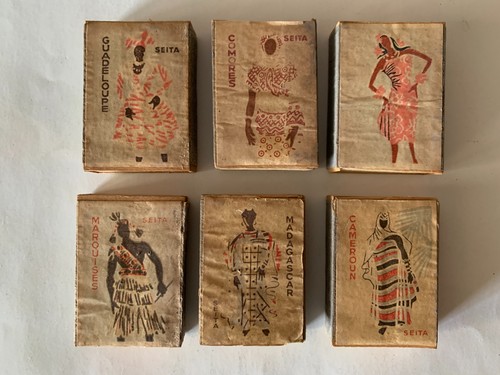 GUADELOUPE
SEITA
COMORES
SEITA
MARQUISES
SEITA
MADAGASCAR
SEITA
CAMEROUN
SEITA